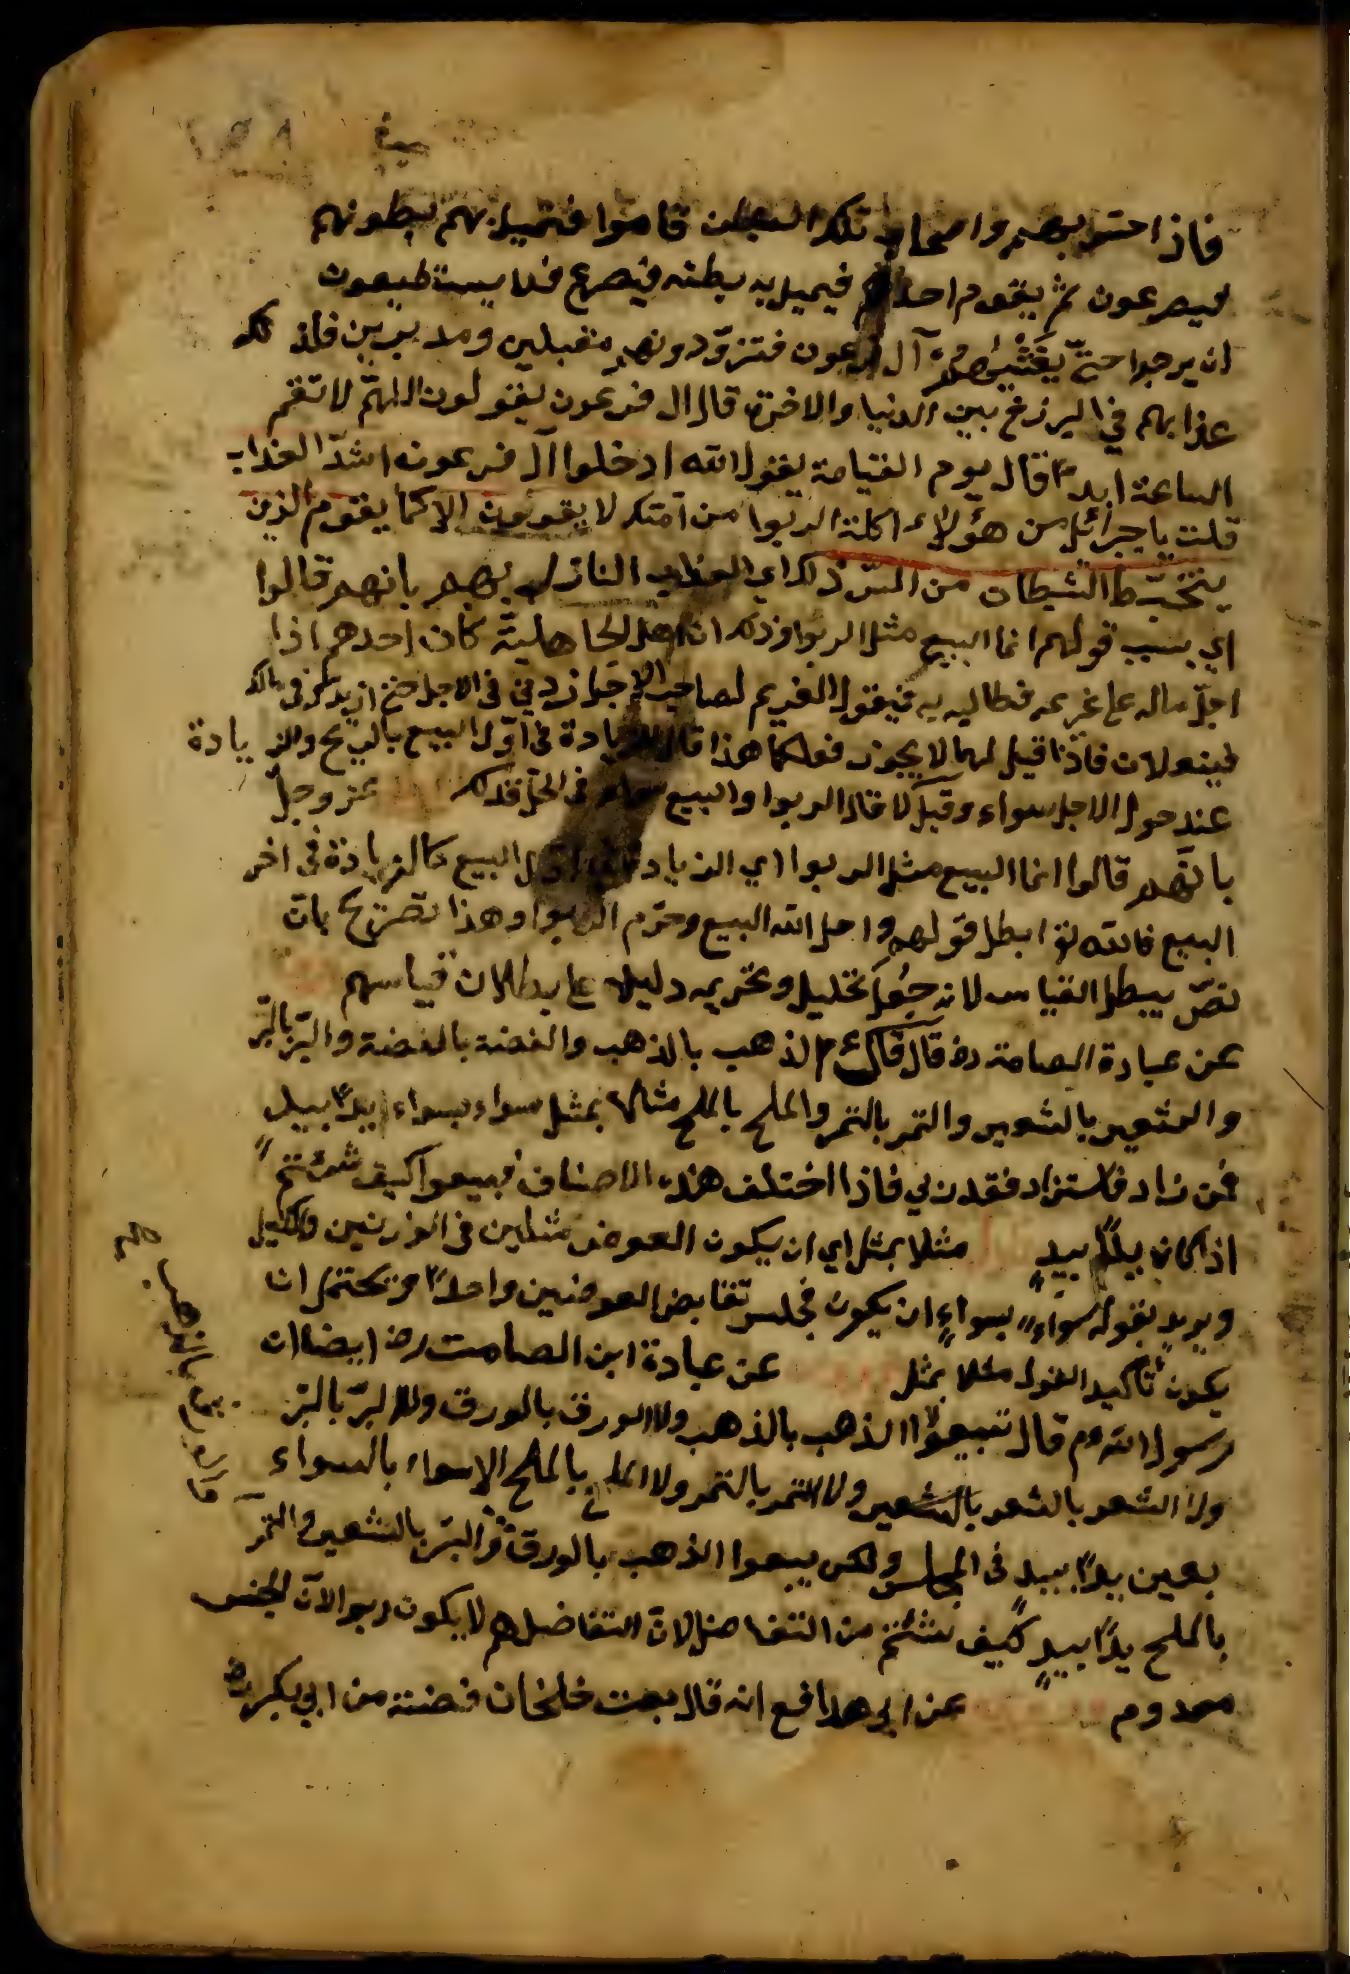 فاذا احس بهم واصحاب تلك البطون قاموا فتميل بهم بطونهم
فيصرعون ثم يقوم احدهم فيميل به بطنه فيصرع فلا يستطيعون
ان يرجوا حتى يغشيهم آل فرعون فتزودونهم مقبلين ومدبرين فلذلك
عذابهم في البرزخ بين الدنيا والاخرة قال ال فرعون يقولون اللهم لا تقم
الساعة ابدا قال يوم القيامة يقول الله ادخلوا آل فرعون اشد العذاب
قلت يا جبرائيل من هؤلاء اكلة الربوا من امتك لا يقومون الا كما يقوم الذين
يتخبط الشيطان من المس ذلك اي العذاب النازل بهم بانهم قالوا
اي بسبب قولهم انما البيع مثل الربوا وذلك ان اهل الجاهلية كان احدهم اذا
اجل ماله على غريمه فطالبه به فيقول الغريم لصاحب الاجل زدني في الاجل حتى ازيدك في مالك
فيفعلان فاذا قيل لهما لا يجوز فعلكما هذا قالا الزيادة في اول البيع بالربح والزيادة
عند حول الاجل سواء وقبل لا قال الربوا والبيع سواء في الحل فذلك عز وجل
بانهم قالوا انما البيع مثل الربوا اي الزيادة في اول البيع كالزيادة في اخر
البيع فالله تع ابطل قولهم واحل الله البيع وحرم الربوا وهذا تصريح بان
نص يبطل القياس لانه جعل تحليل وتحريمه دليلا على بطلان قياسهم
عن عبادة الصامة رض قال قال ع م الذهب بالذهب والفضة بالفضة والبر بالبر
والشعير بالشعير والتمر بالتمر والملح بالملح مثلا بمثل سواء بسواء يدا بيد
فمن زاد فاستزاد فقد ربي فاذا اختلف هذه الاصناف فبيعوا كيف شئتم
اذا كان يدا بيد مثلا بمثل اي ان يكون العوض مثلين في الوزنين والكيل
ويريد بقوله سواء بسواء ان يكون مجلس تقابض العوضين واحدا ويحتمل ان
يكون تأكيد القول مثلا بمثل عن عبادة ابن الصامت رض ايضا ان
رسول الله م قال تبيعوا الذهب بالذهب ولا الورق بالورق ولا البر بالبر
ولا الشعر بالشعر بالشعير ولا التمر بالتمر ولا الملح بالملح الا سواء بالسواء
بعين يدا بيد في المجلس ولكن بيعوا الذهب بالورق والبر بالشعير والتمر
بالملح يدا بيد كيف شئتم من التفاضل لان التفاضل هم لا يكون ربوا لان الجنس
معدوم عن ابي هدافع انه قال بعت خلخان فضة من ابي بكر رض